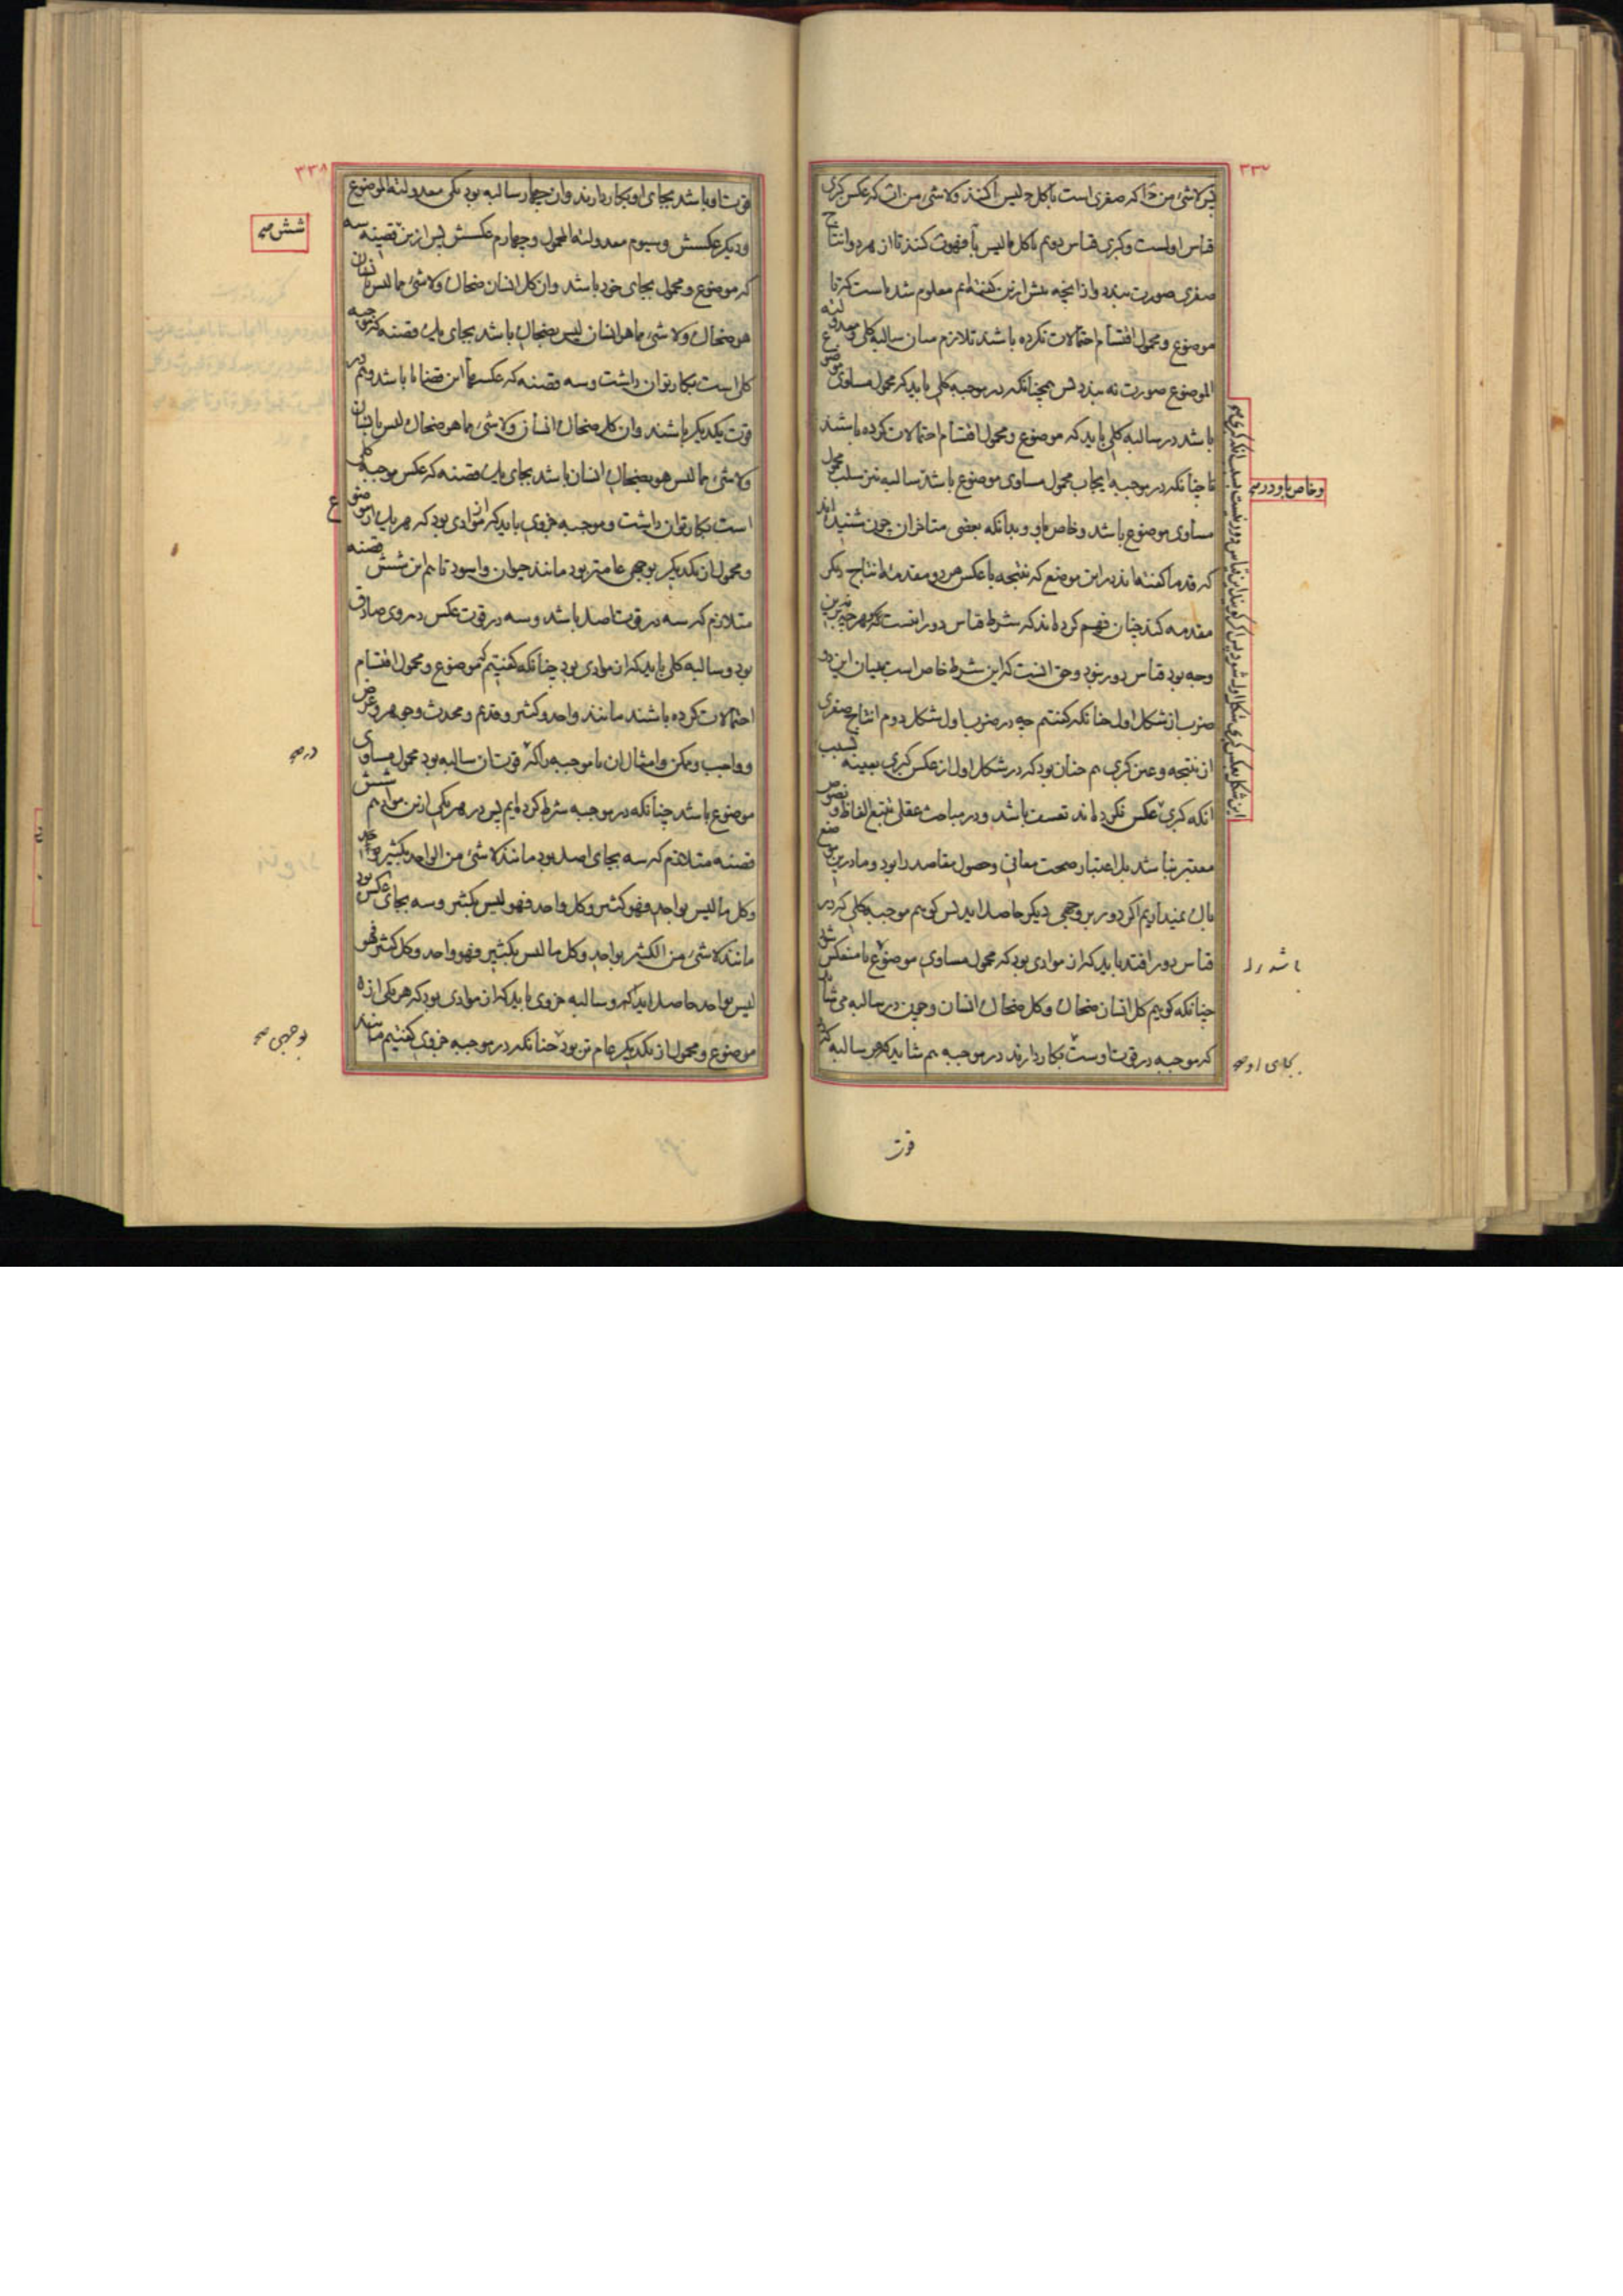 ۳۳۷
پس لاشیء من ج ا که صغری است با کل ج لیس ا کنند ولاشیء من ا ب که عکس کبری
قیاس اولست وکبری قیاس دویم با کل ما لیس ا فهو ب کنند تا از هر دو انتاج
صغری صورت بندد واز انچه پیش ازین گفته‌ایم معلوم شده است که تا
موضوع ومحمول اقتسام احتمالات نکرده باشند تلازم میان سالبه کلی ومعدولیة
الموضوع صورت نه بندد پس همچنانکه در موجبه کلی باید که محمول مساوی موضوع
باشد در سالبه کلی باید که موضوع ومحمول اقتسام احتمالات کرده باشند
تا چنانکه در موجبه ایجاب محمول مساوی موضوع باشد سالبه نیز سلب محمول
مساوی موضوع باشد وخاص باو وبدانکه بعضی متاخران چون شنیده‌اند
که قدما گفته‌اند در این موضع که نتیجه با عکس هر دو مقدمه انتاج دیگر
مقدمه کند چنان فهم کرده‌اند که شرط قیاس دور انست که هرچه برین
وجه بود قیاس دور نبود وحق انست که این شرط خاص است ببیان این دو
ضرب از شکل اول چنانکه گفتیم چه در ضرب اول شکل دوم انتاج صغری
از نتیجه وعین کبری هم چنان بود که در شکل اول از عکس کبری بعینه بسبب
انکه کبری عکس نکرده‌اند تعسف باشد ودر مباحث عقلی تتبع الفاظ ونصوص
معتبر نباشد بل اعتبار صحت معانی وحصول مقاصد را بود وما درین موضع
باک نمیداریم اگر دور بر وجهی دیگر حاصل اید پس گوییم موجبه کلی که در
قیاس دور افتد باید که از موادی بود که محمول مساوی موضوع یا منعکس شود
چنانکه گوییم کل انسان ضحاک وکل ضحاک انسان وچون در سالبه می شاید
که موجبه در قوت اوست بکار دارند در موجبه هم شاید که هر سالبه که در
وخاص باو در صح
باشد را
بجای او صح
قوت
۳۳۸
قوت او باشد بجای او بکار دارند وان چهار سالبه بود یکی معدولیة الموضوع
ودیگر عکسش وسیوم معدولیة المحمول وچهارم عکسش پس ازین قضیه سه
که موضوع ومحمول بجای خود باشد وان کل انسان ضحاک ولاشیء مما لیس بانسان
هو ضحاک ولاشیء مما هو انسان لیس بضحاک باشد بجای یک قضیه که موجبه
کلی است بکار توان داشت وسه قضیه که عکسهاء این قضایا باشد وهم در
قوت یکدیگر باشند وان کل ضحاک انسان ولاشیء مما هو ضحاک لیس بانسان
ولاشیء مما لیس هو بضحاک انسان باشد بجای یک قضیه که عکس موجبه کلی
است بکار توان داشت وموجبه جزوی باید که از موادی بود که هر یک از موضوع
ومحمول از یکدیگر بوجهی عامتر بود مانند حیوان واسود تا هم این شش قضیه
متلازم که سه در قوت اصل باشد وسه در قوت عکس در وی صادق
بود وسالبه کلی باید که از موادی بود چنانکه گفتیم که موضوع ومحمول اقتسام
احتمالات کرده باشند مانند واحد وکثیر وقدیم ومحدث وجوهر وعرض
وواجب وممکن وامثال ان تا موجبه را که قوت ان سالبه بود محمول مساوی
موضوع باشد چنانکه در موجبه شرط کرده‌ایم پس در هر یکی ازین مواد هم شش
قضیه متلازم که سه بجای اصل بود مانند لاشیء من الواحد بکثیر
وکل ما لیس بواحد فهو کثیر وکل واحد فهو لیس بکثیر وسه بجای عکس بود
مانند لاشیء من الکثیر بواحد وکل ما لیس بکثیر فهو واحد وکل کثیر فهو
لیس بواحد حاصل اید وسالبه جزوی باید که از موادی بود که هر یکی از
موضوع ومحمول از یکدیگر عام تر بود چنانکه در موجبه جزوی گفتیم مانند
شش صح
در صح
بوجهی صح